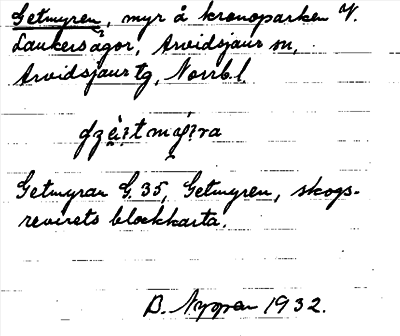 Getmyren, myr å kronoparken V.
Laukers ägor, Arvidsjaur sn,
Arvidsjaur tg, Norrb.l.
Getmyran G 35, Getmyren, skogs-
revirets blockkarta.
B. Nyman 1932.